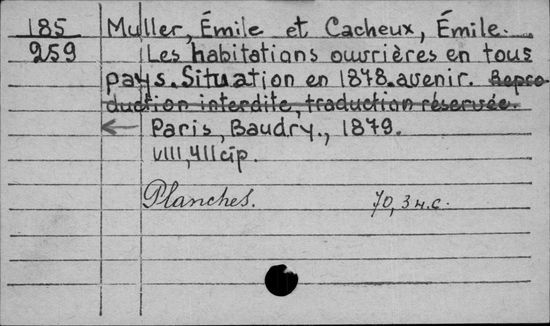 185 Muller, Émile et Cacheux, Émile.
259 Les habitations ouvrières en tous
pays. Situation en 1878. avenir. Repro-
duction interdite, traduction réservée.
← Paris, Baudry., 1879.
VIII, 411 с̄тр.
Planches. 70,3 н.с.